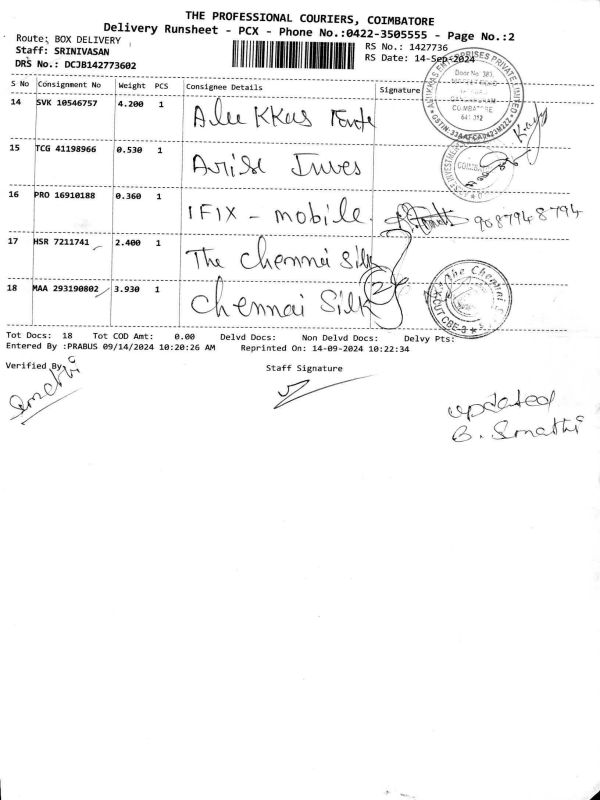 THE PROFESSIONAL COURIERS, COIMBATORE
Delivery Runsheet - PCX - Phone No.:0422-3505555 - Page No.:2
Route: BOX DELIVERY
Staff: SRINIVASAN
DRS No.: DCJB142773602
RS No.: 1427736
RS Date: 14-Sep-2024
S No Consignment No Weight PCS Consignee Details Signature
14 SVK 10546757 4.200 1 Alukkas
15 TCG 41198966 0.530 1 Arise Inves
16 PRO 16910188 0.360 1 IFIX - mobile. 9087948794
17 HSR 7211741 2.400 1 The Chennai Silk
18 MAA 293190802 3.930 1 Chennai Silk 2
PRISES PRIVATE LIMITED
Door No. 383,
COIMBATORE
641 012
The Chennai
CUT CBE-3
Tot Docs: 18 Tot COD Amt: 0.00 Delvd Docs: Non Delvd Docs: Delvy Pts:
Entered By :PRABUS 09/14/2024 10:20:26 AM Reprinted On: 14-09-2024 10:22:34
Verified By
Staff Signature
updated
B. Smathi